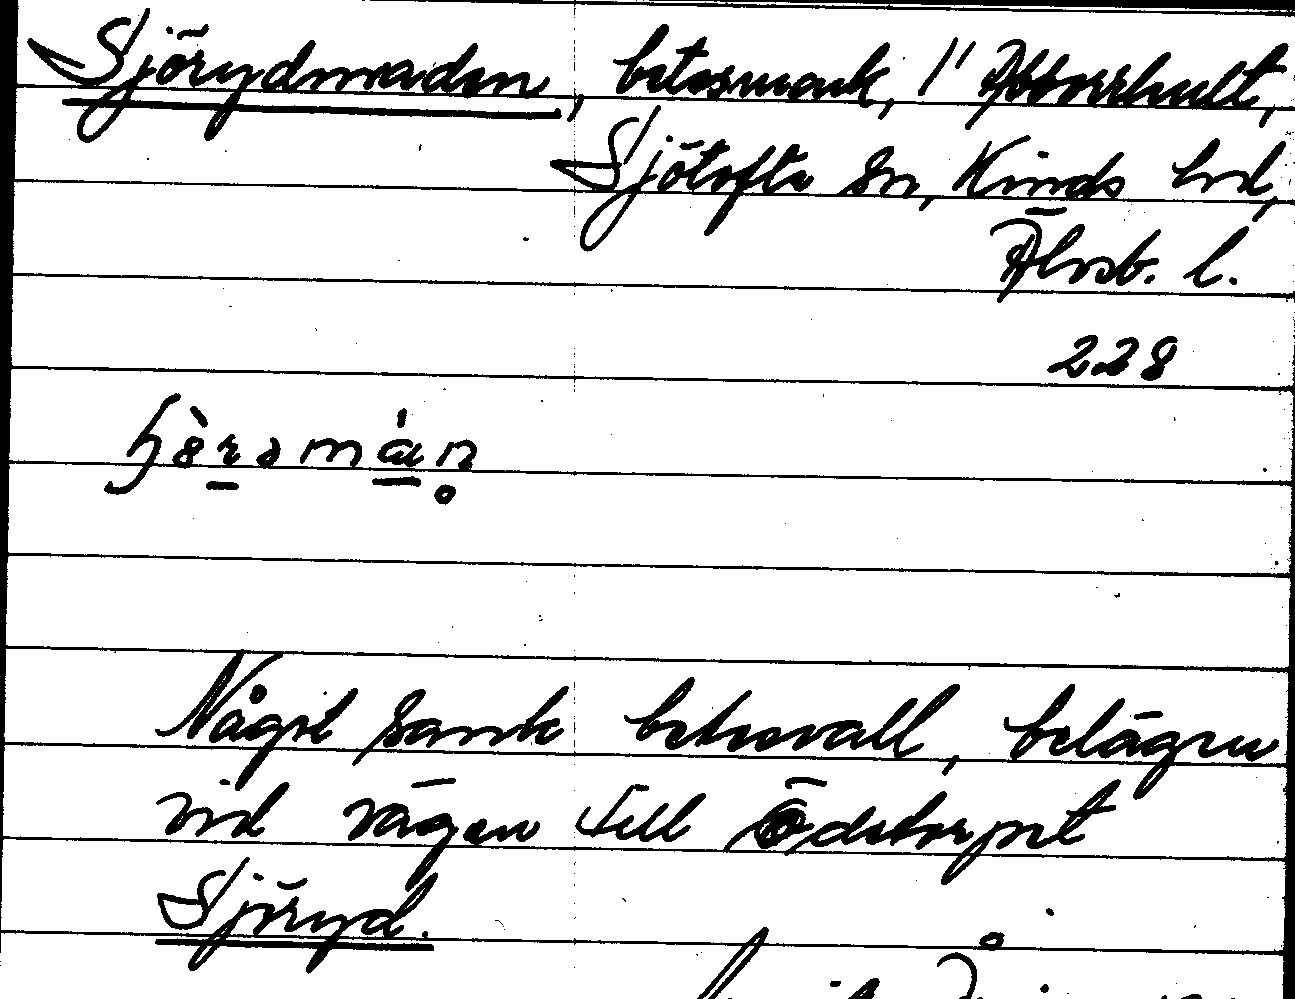 Sjörydmaden, betesmark, 1" Abborrhult,
Sjötofta sn, Kinds hd,
Älvsb. l.
228
Något sank betesvall, belägen
vid vägen till Ödetorpet
Sjöryd.